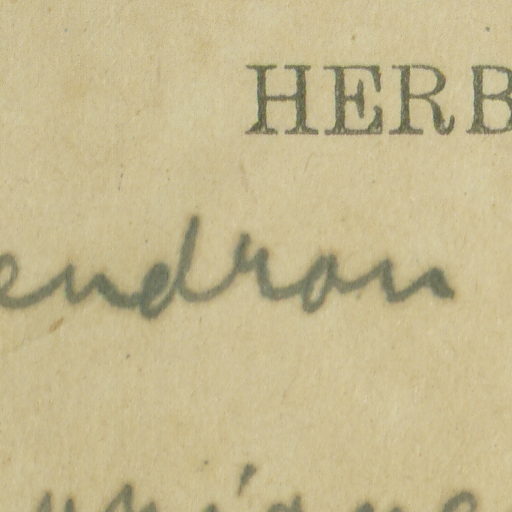 HERB
endron